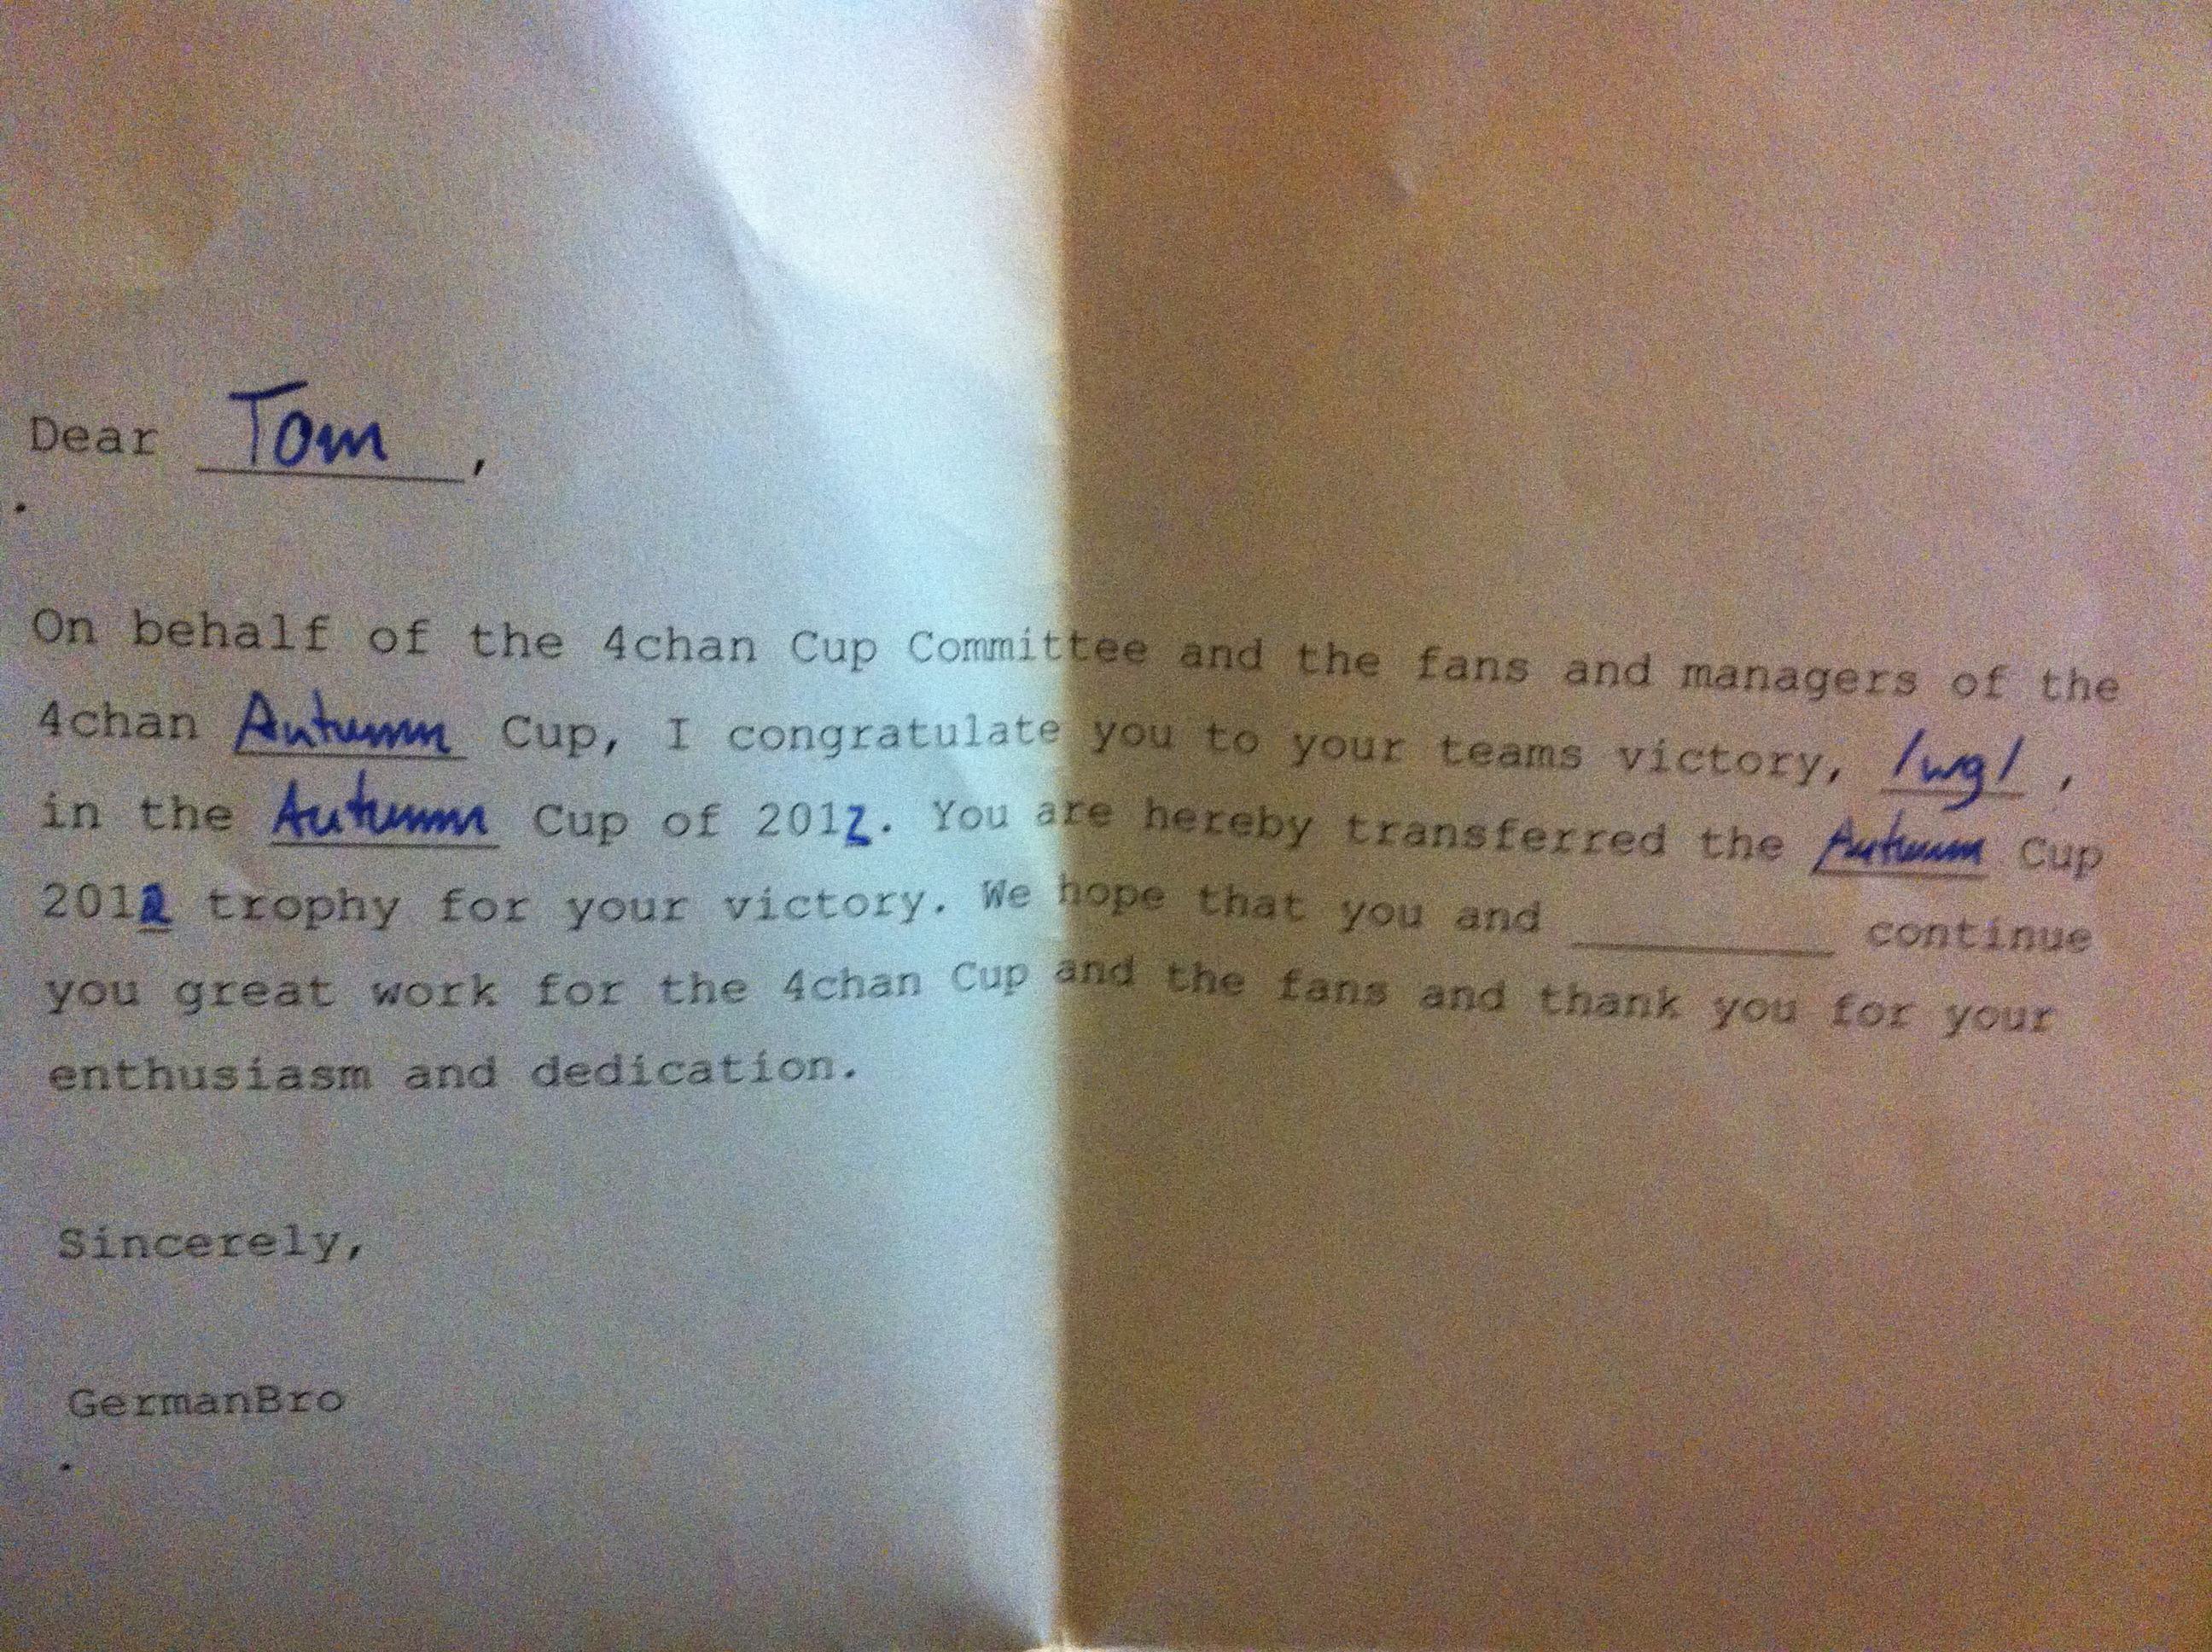 Dear Tom,
On behalf of the 4chan Cup Committee and the fans and managers of the
4chan Autumn Cup, I congratulate you to your teams victory, /wg/,
in the Autumn Cup of 2012. You are hereby transferred the Autumn Cup
2012 trophy for your victory. We hope that you and ________ continue
you great work for the 4chan Cup and the fans and thank you for your
enthusiasm and dedication.
Sincerely,
GermanBro